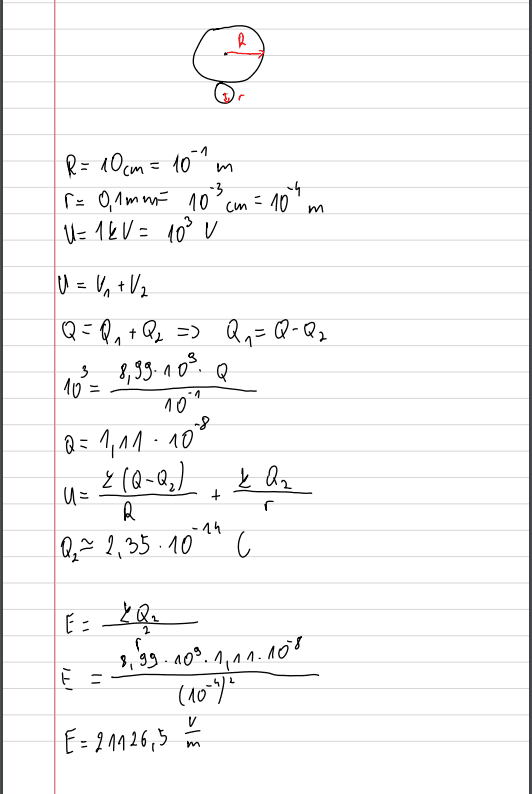 R
r
R = 10cm = 10⁻¹ m
r = 0,1mm = 10⁻³ cm = 10⁻⁴ m
U = 1kV = 10³ V
U = V₁ + V₂
Q = Q₁ + Q₂ => Q₁ = Q - Q₂
10³ = (8,99·10⁹·Q) / 10⁻¹
Q = 1,11·10⁻⁸
U = k(Q-Q₂) / R + kQ₂ / r
Q₂ ≈ 2,35·10⁻¹⁴ C
E = kQ₂ / r²
E = (8,99·10⁹·1,11·10⁻⁸) / (10⁻⁴)²
E = 21126,5 V/m